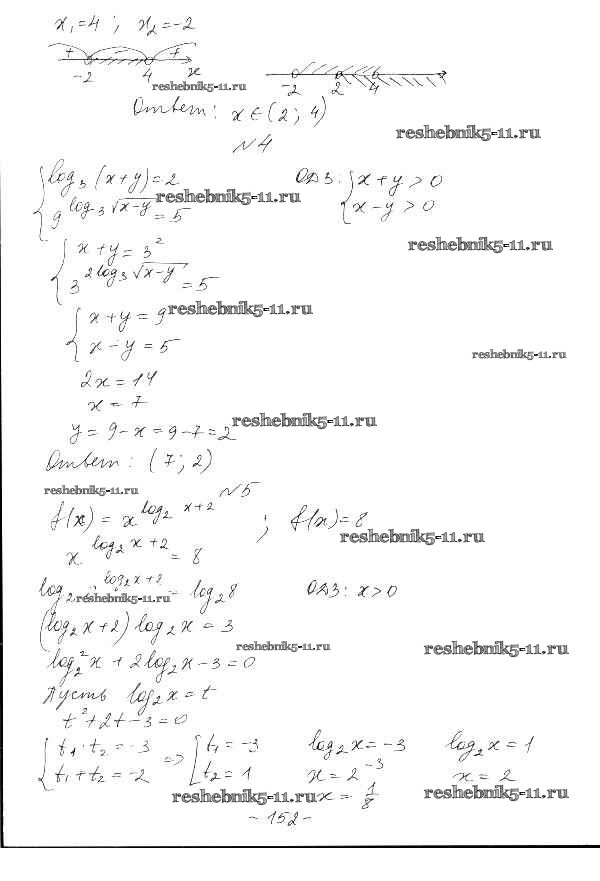 x₁=4 ; x₂=-2
+ +
-2 4 x
-2 2 4
reshebnik5-11.ru
Ответ: x∈(2; 4)
reshebnik5-11.ru
№4
{log₃(x+y)=2 ОДЗ: {x+y>0
reshebnik5-11.ru
9^(log₃√(x-y))=5 x-y>0
{x+y=3² reshebnik5-11.ru
3^(2log₃√(x-y))=5
{x+y=9 reshebnik5-11.ru
x-y=5
reshebnik5-11.ru
2x=14
x=7
y=9-x=9-7=2 reshebnik5-11.ru
Ответ: (7; 2)
reshebnik5-11.ru №5
f(x)=x^(log₂x+2) ; f(x)=8
reshebnik5-11.ru
x^(log₂x+2)=8
log₂ ^(log₂x+2) = log₂8 ОДЗ: x>0
reshebnik5-11.ru
(log₂x+2)log₂x=3
reshebnik5-11.ru reshebnik5-11.ru
log₂²x+2log₂x-3=0
Пусть log₂x=t
t²+2t-3=0
{t₁·t₂=-3 => [t₁=-3 log₂x=-3 log₂x=1
t₁+t₂=-2 t₂=1 x=2⁻³ x=2
reshebnik5-11.ru x=1/8 reshebnik5-11.ru
-152-